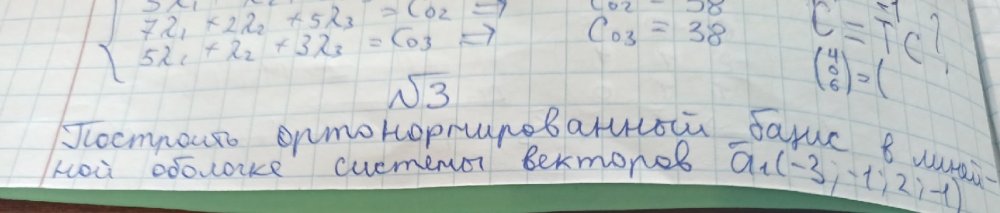 7λ₁ + 2λ₂ + 5λ₃ = C₀₂ ⇒
5λ₁ + λ₂ + 3λ₃ = C₀₃ ⇒ C₀₃ = 38
C = T⁻¹C?
(4 0 6) = (
√3
Построить ортонормированный базис в линей-
ной оболочке системы векторов a₁(-3; -1; 2; -1)